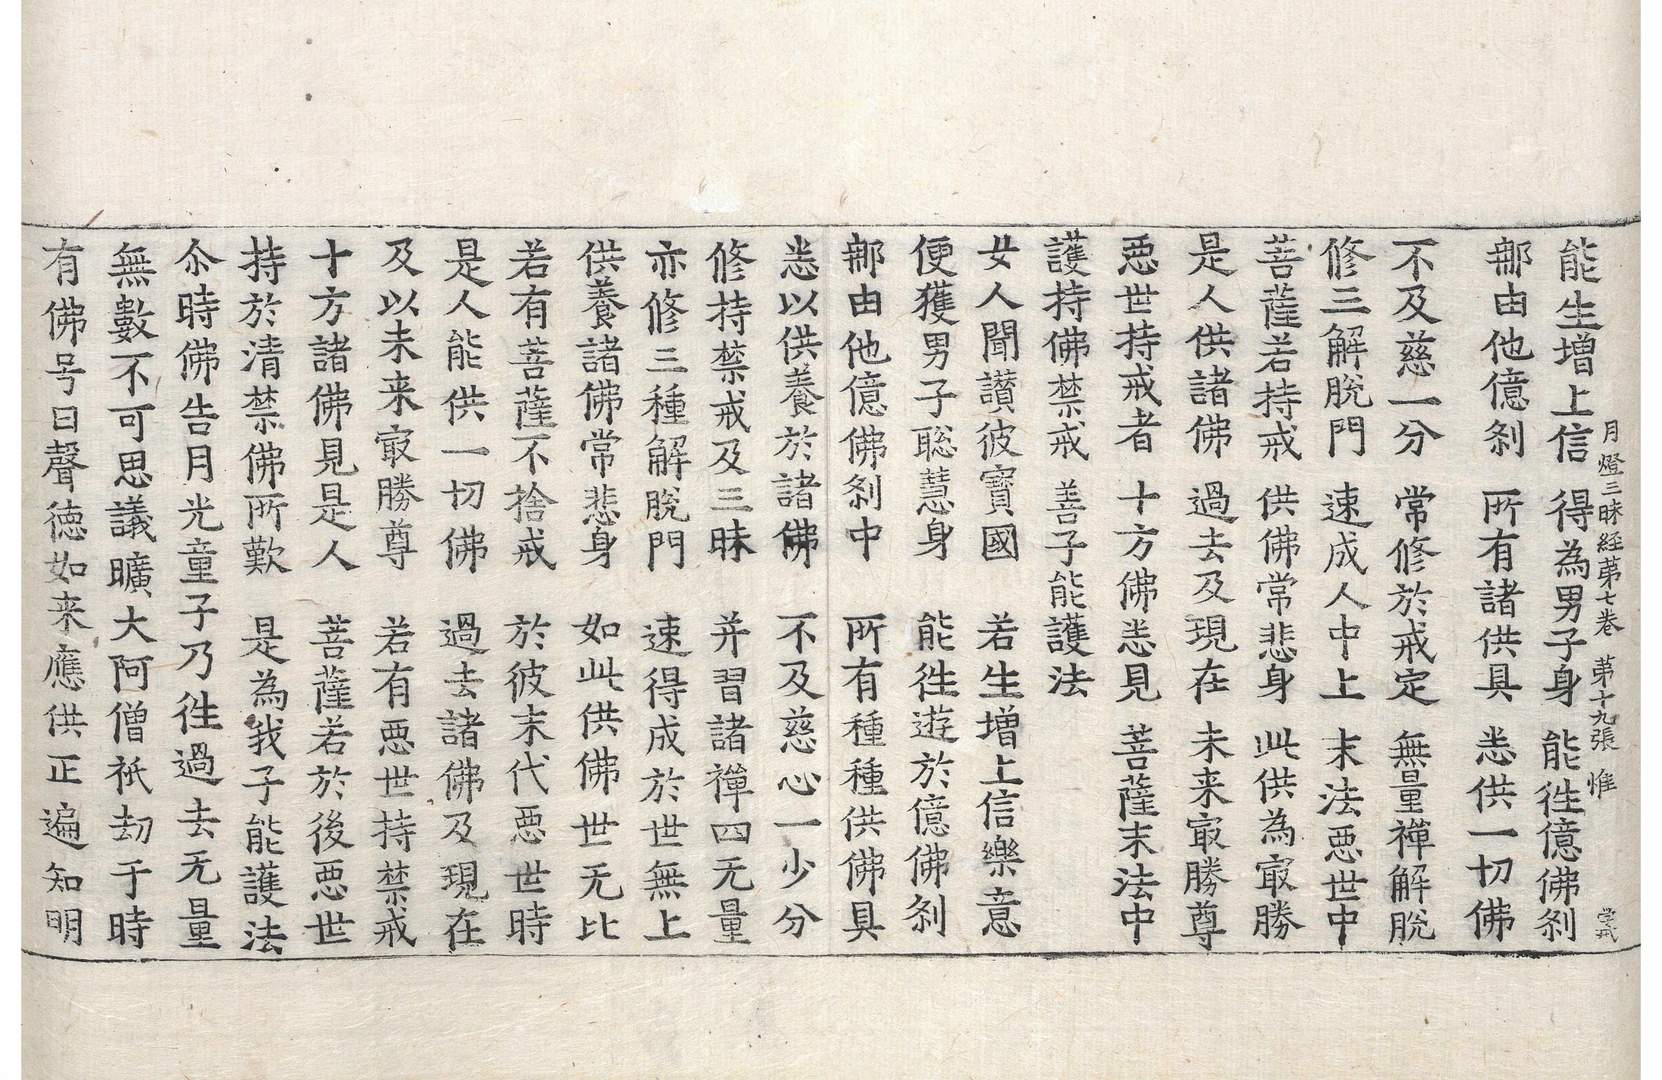 月燈三昧経苐七卷　苐十九張　惟
能生增上信　得為男子身　能徃億佛刹
𨚗由他億刹　所有諸供具　悉供一切佛
不及慈一分　常修於戒定　無量禪解脫
修三解脫門　速成人中上　末法惡世中
菩薩若持戒　供佛常悲身　此供為㝡勝
是人供諸佛　過去及現在　未来㝡勝尊
惡世持戒者　十方佛悉見　菩薩末法中
護持佛禁戒　善子能護法
女人聞讃彼寳國　若生增上信樂意
便獲男子聡慧身　能徃遊於億佛刹
𨚗由他億佛刹中　所有種種供佛具
悉以供養於諸佛　不及慈心一少分
修持禁戒及三昧　并習諸禪四无量
亦修三種解脫門　速得成於世無上
供養諸佛常悲身　如此供佛世无比
若有菩薩不捨戒　於彼末代惡世時
是人能供一切佛　過去諸佛及現在
及以未来㝡勝尊　若有惡世持禁戒
十方諸佛見是人　菩薩若於後惡世
持於清禁佛所歎　是為我子能護法
尒時佛告月光童子乃徃過去无量
無數不可思議曠大阿僧祇劫于時
有佛号曰聲徳如来應供正遍知明